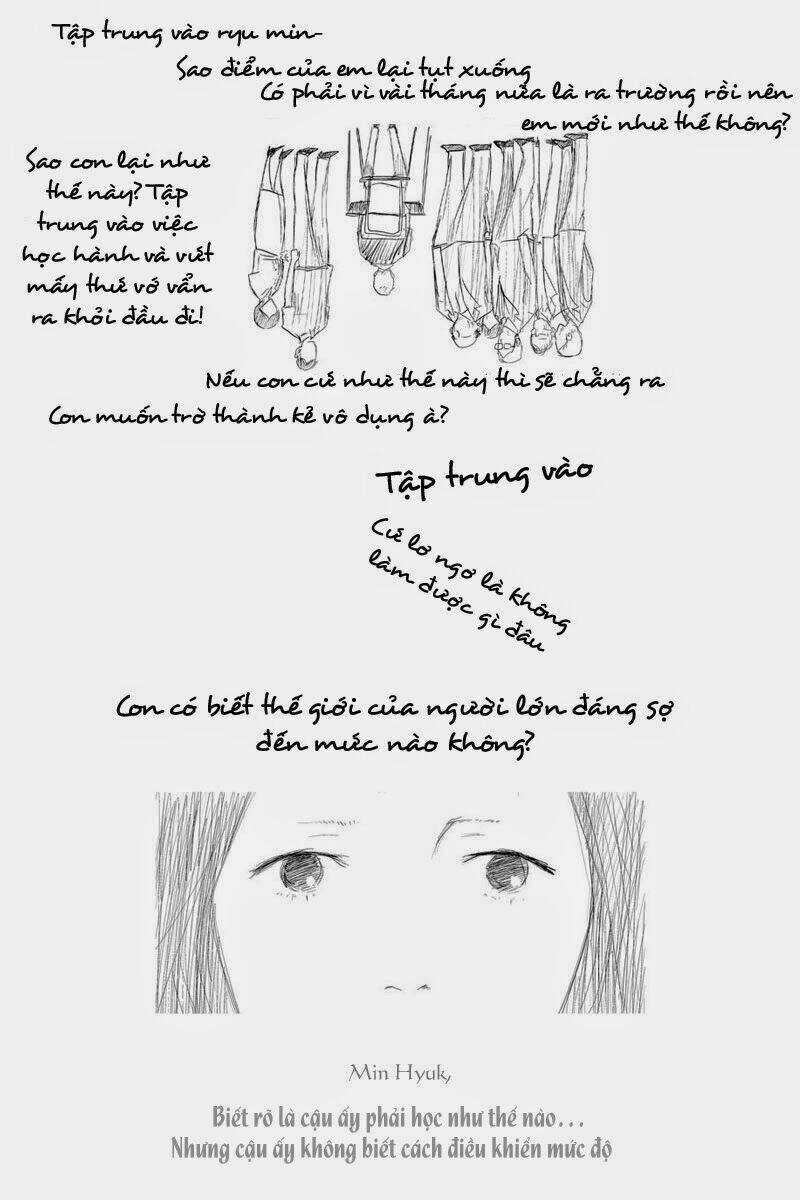 Tập trung vào ryu min-
Sao điểm của em lại tụt xuống
Có phải vì vài tháng nữa là ra trường rồi nên
em mới như thế không?
Sao con lại như
thế này? Tập
trung vào việc
học hành và vứt
mấy thứ vớ vẩn
ra khỏi đầu đi!
Nếu con cứ như thế này thì sẽ chẳng ra
Con muốn trở thành kẻ vô dụng à?
Tập trung vào
Cứ lơ ngơ là không
làm được gì đâu
Con có biết thế giới của người lớn đáng sợ
đến mức nào không?
Min Hyuk,
Biết rõ là cậu ấy phải học như thế nào...
Nhưng cậu ấy không biết cách điều khiển mức độ